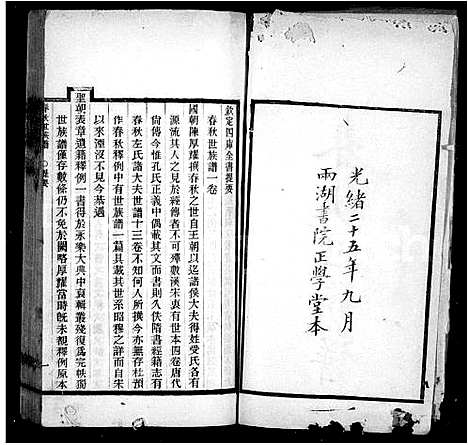 光緒二十五年九月
兩湖書院正學堂本
欽定四庫全書提要
春秋世族譜一卷
國朝陳厚耀撰春秋之世自王朝以迄諸侯大夫得姓受氏各有
源流其人之見於經傳者不可殫數漢宋衷有世本四卷唐代
尚傳今惟孔氏正義中偶載其文而書則久佚隋書經籍志有
春秋左氏諸大夫世譜十三卷不知何人所撰今亦無存杜預
作春秋釋例中有世族譜一篇具載其世系昭穆之詳而自宋
以來湮沒不見今恭遇
聖朝表章遺籍釋例一書得於永樂大典中裒輯叢殘復爲完帙獨
世族譜僅存數條仍不免於闕略厚耀當時旣未覩釋例原本
春秋世族譜 提要